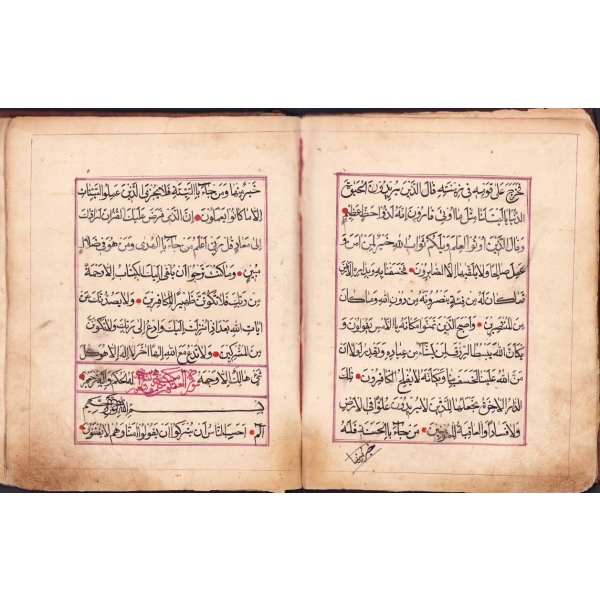 فخرج على قومه في زينته قال الذين يريدون الحيوة
الدنيا يا ليت لنا مثل ما اوتي قارون انه لذو حظ عظيم
وقال الذين اوتوا العلم ويلكم ثواب الله خير لمن امن و
عمل صالحا ولا يلقيها الا الصابرون فخسفنا به وبداره الارض
فما كان له من فئة ينصرونه من دون الله وما كان
من المنتصرين واصبح الذين تمنوا مكانه بالامس يقولون و
يكان الله يبسط الرزق لمن يشاء من عباده ويقدر لولا ان
من الله علينا لخسف بنا ويكانه لا يفلح الكافرون تلك
الدار الاخرة نجعلها للذين لا يريدون علوا في الارض
ولا فسادا والعاقبة للمتقين من جاء بالحسنة فله
خير منها
خير منها ومن جاء بالسيئة فلا يجزى الذين عملوا السيئات
الا ما كانوا يعملون ان الذي فرض عليك القران لرادك
الى معاد قل ربي اعلم من جاء بالهدى ومن هو في ضلال
مبين وما كنت ترجوا ان يلقى اليك الكتاب الا رحمة
من ربك فلا تكونن ظهيرا للكافرين ولا يصدنك عن
ايات الله بعد اذ انزلت اليك وادع الى ربك ولا تكونن
من المشركين ولا تدع مع الله الها اخر لا اله الا هو كل
شئ هالك الا وجهه له الحكم واليه ترجعون
بسم الله الرحمن الرحيم
الم احسب الناس ان يتركوا ان يقولوا امنا وهم لا يفتنون